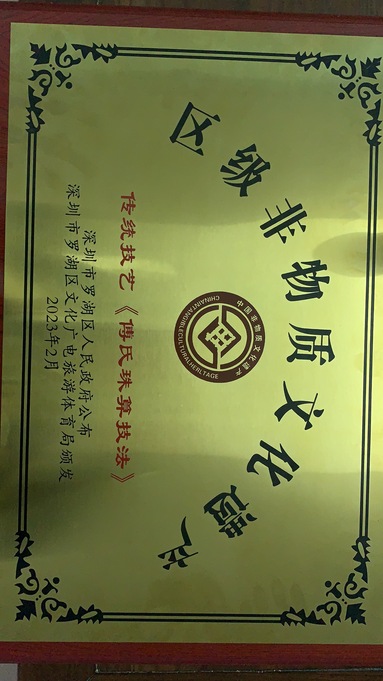 区级非物质文化遗产
中国非物质文化遗产
CHINAINTANGIBLECULTURALHERITAGE
传统技艺《傅氏珠算技法》
深圳市罗湖区人民政府公布
深圳市罗湖区文化广电旅游体育局颁发
2023年2月